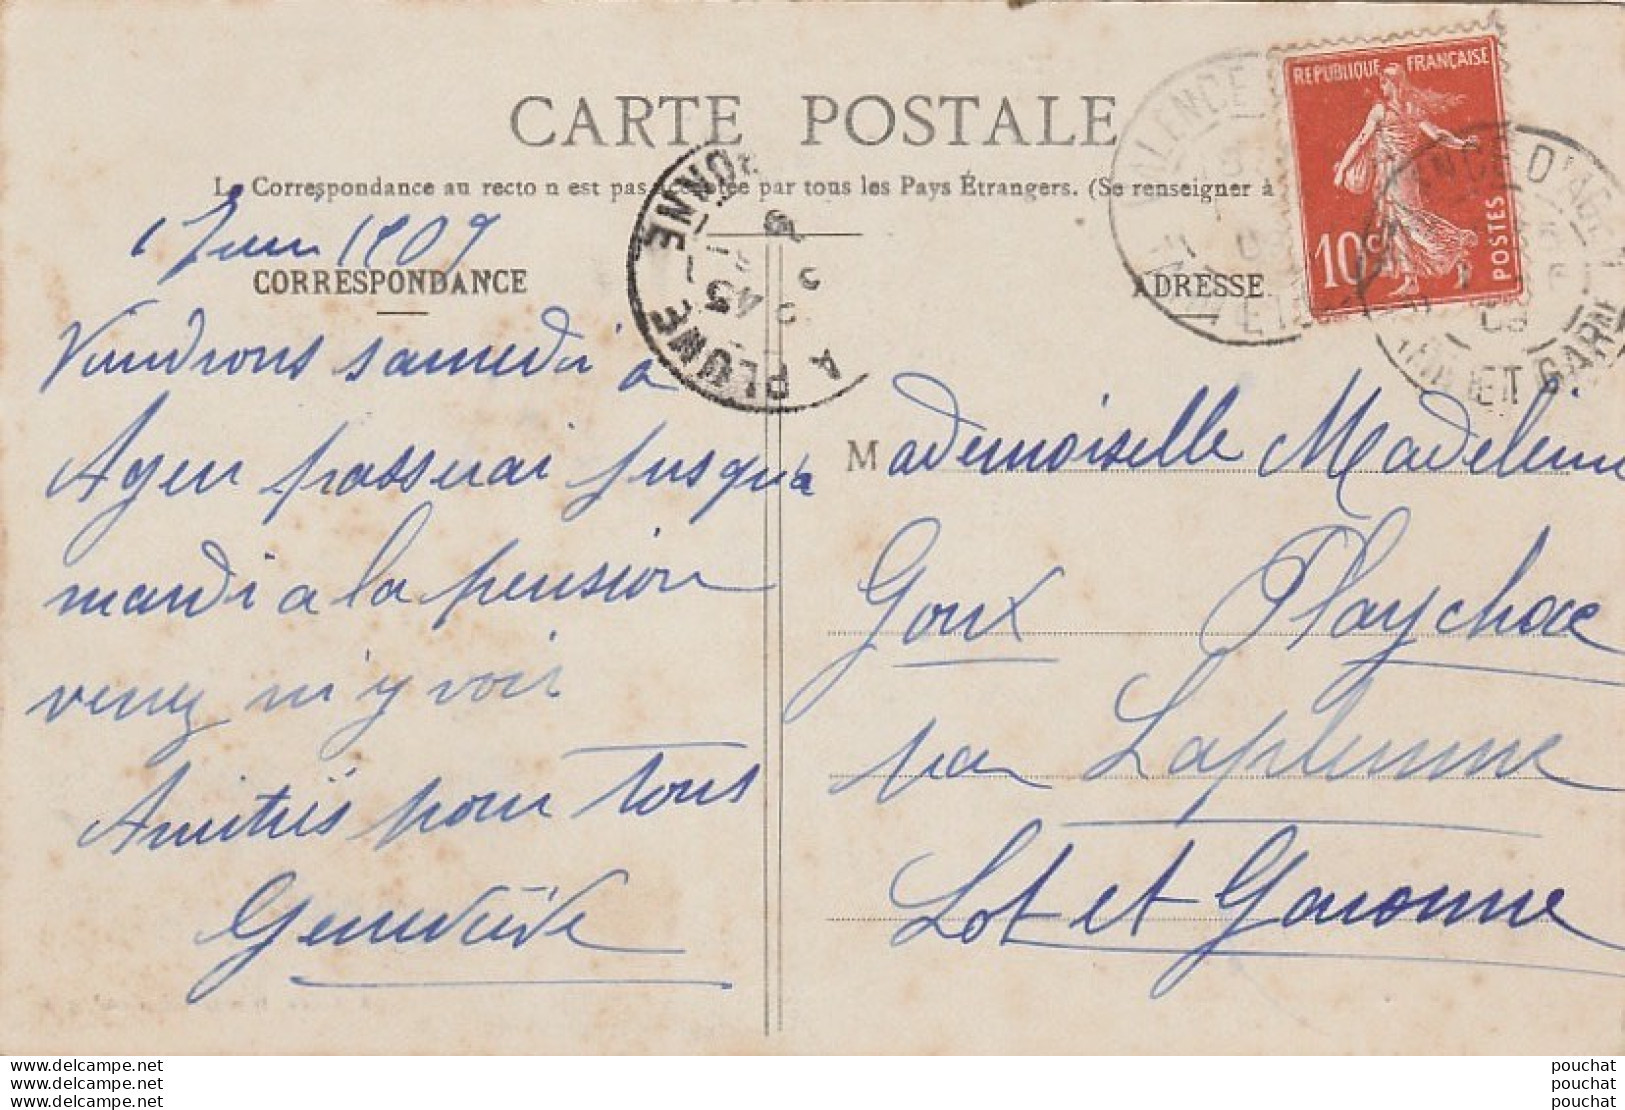 CARTE POSTALE
Correspondance au recto n est pas par tous les Pays Étrangers. (Se renseigner à
1 Juin 1909
CORRESPONDANCE
ADRESSE
Viendrons samedi à
Agen passerai jusqu'à
mardi a la pension
venez m'y voir
Amitiés pour tous
Geneviève
Mademoiselle Madeleine
Goux Playchac
par Laplume
Lot et Garonne
REPUBLIQUE FRANÇAISE
10c
POSTES
VALENCE
VALENCE D'AGEN
TARN ET GARNE
LAPLUME
delcampe.net
delcampe.net
delcampe.net
pouchat
pouchat
pouchat